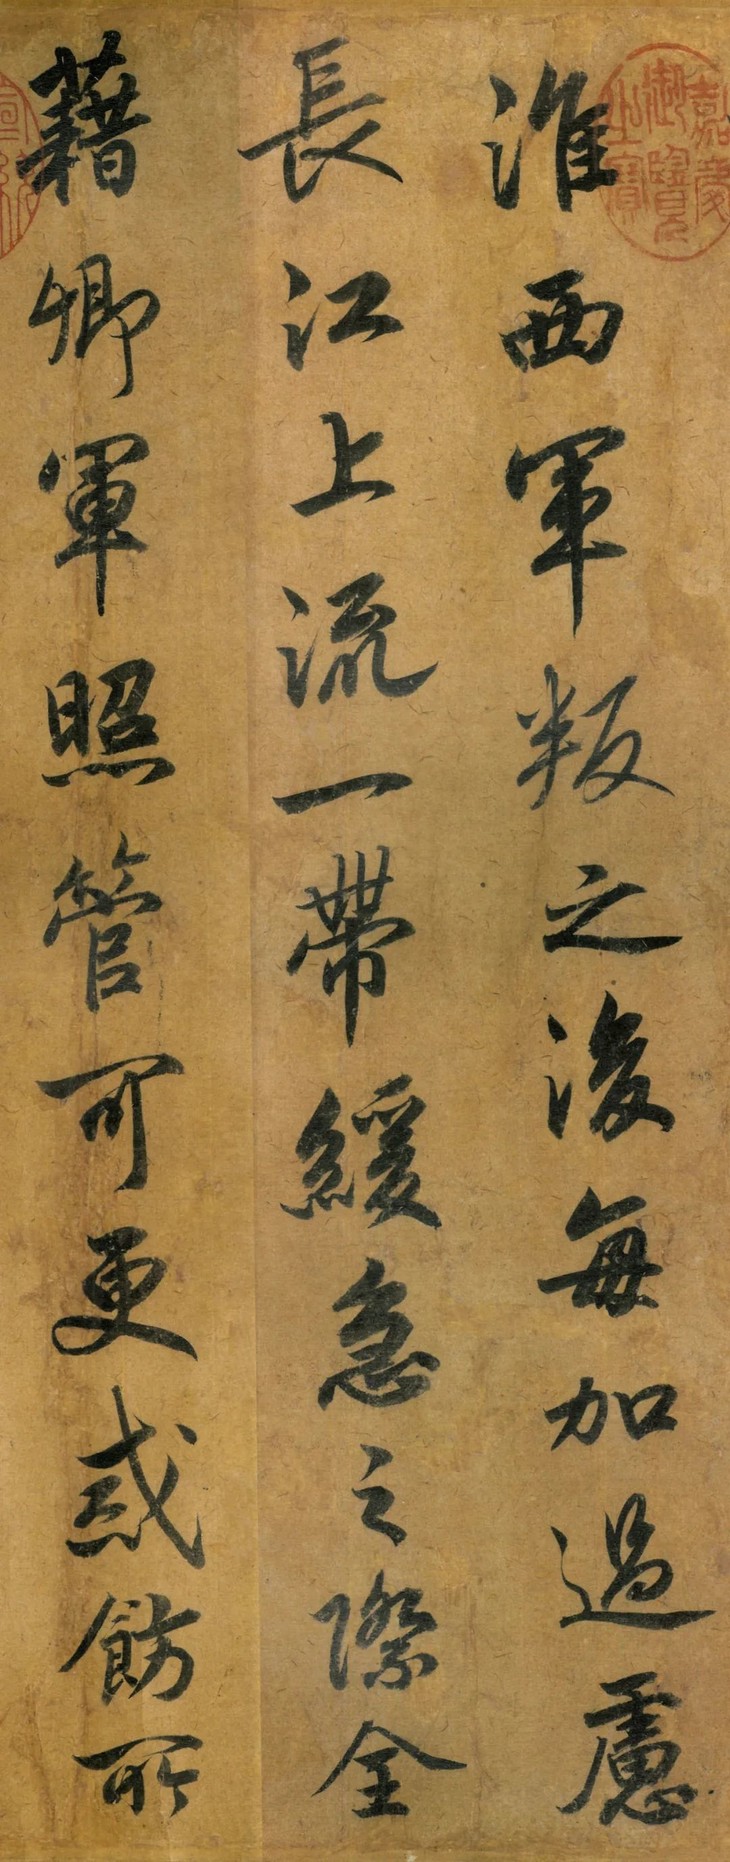 淮西軍叛之後每加過慮
長江上流一帶緩急之際全
藉卿軍照管可更戒飭所
嘉慶御覽之寶